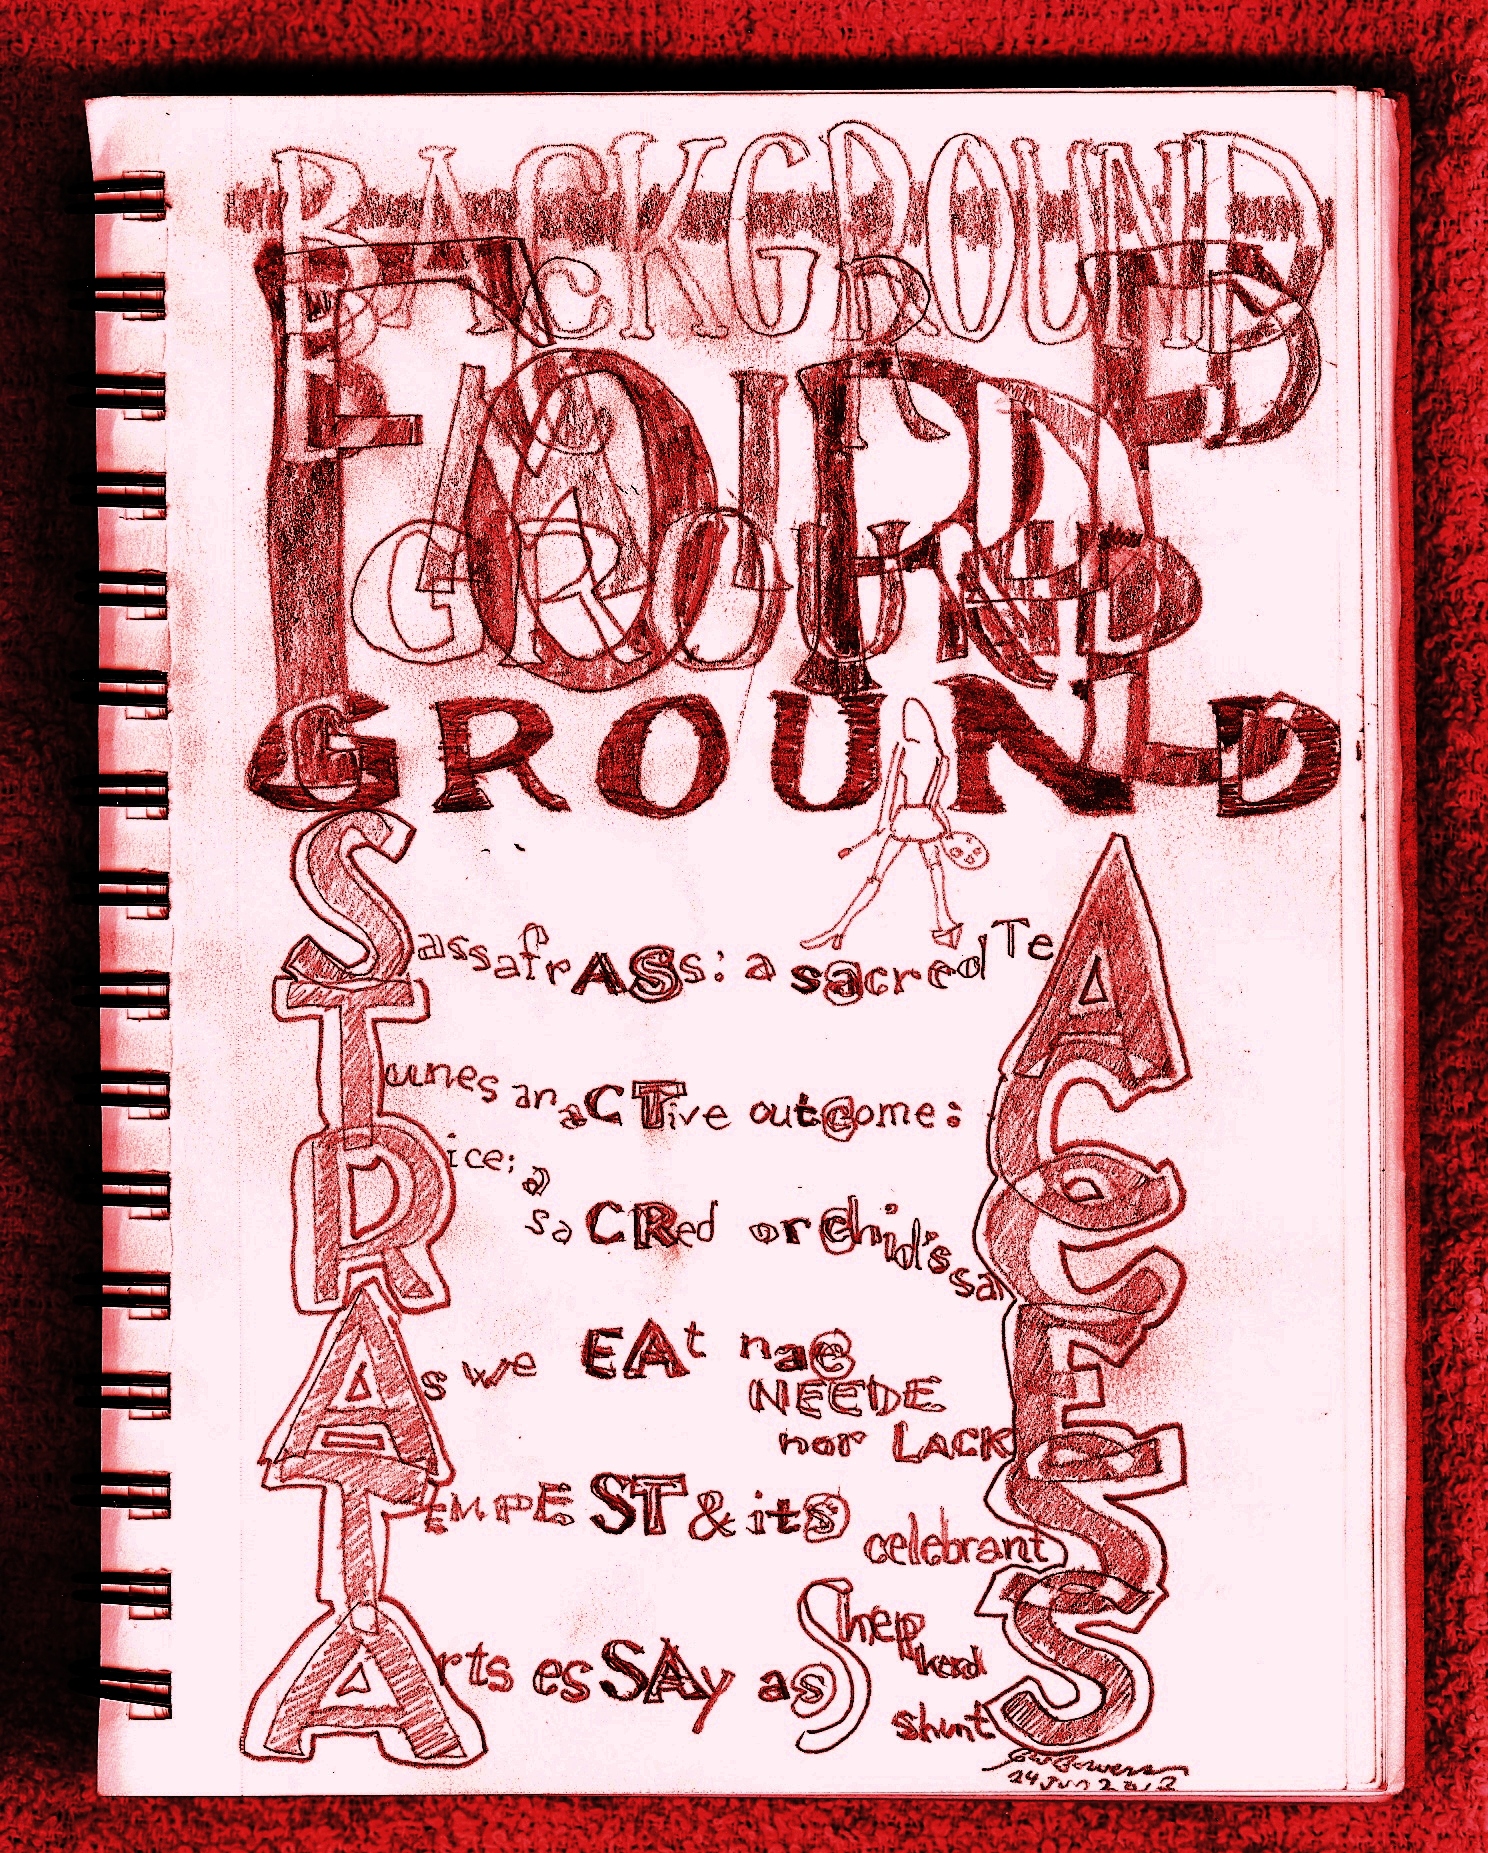 BACKGROUND
FORE
GROUND
GROUND
SassafrASs: a sacred TeA
Tunes an aCTive outcome: C
Rice; a
saCRed orchid's saC
As we EAt nae
NEEDE
nor LACKE
TEMPEST & itS
celebrantS
Arts esSAy as
Shepherd
shuntS
24 Jun 2012